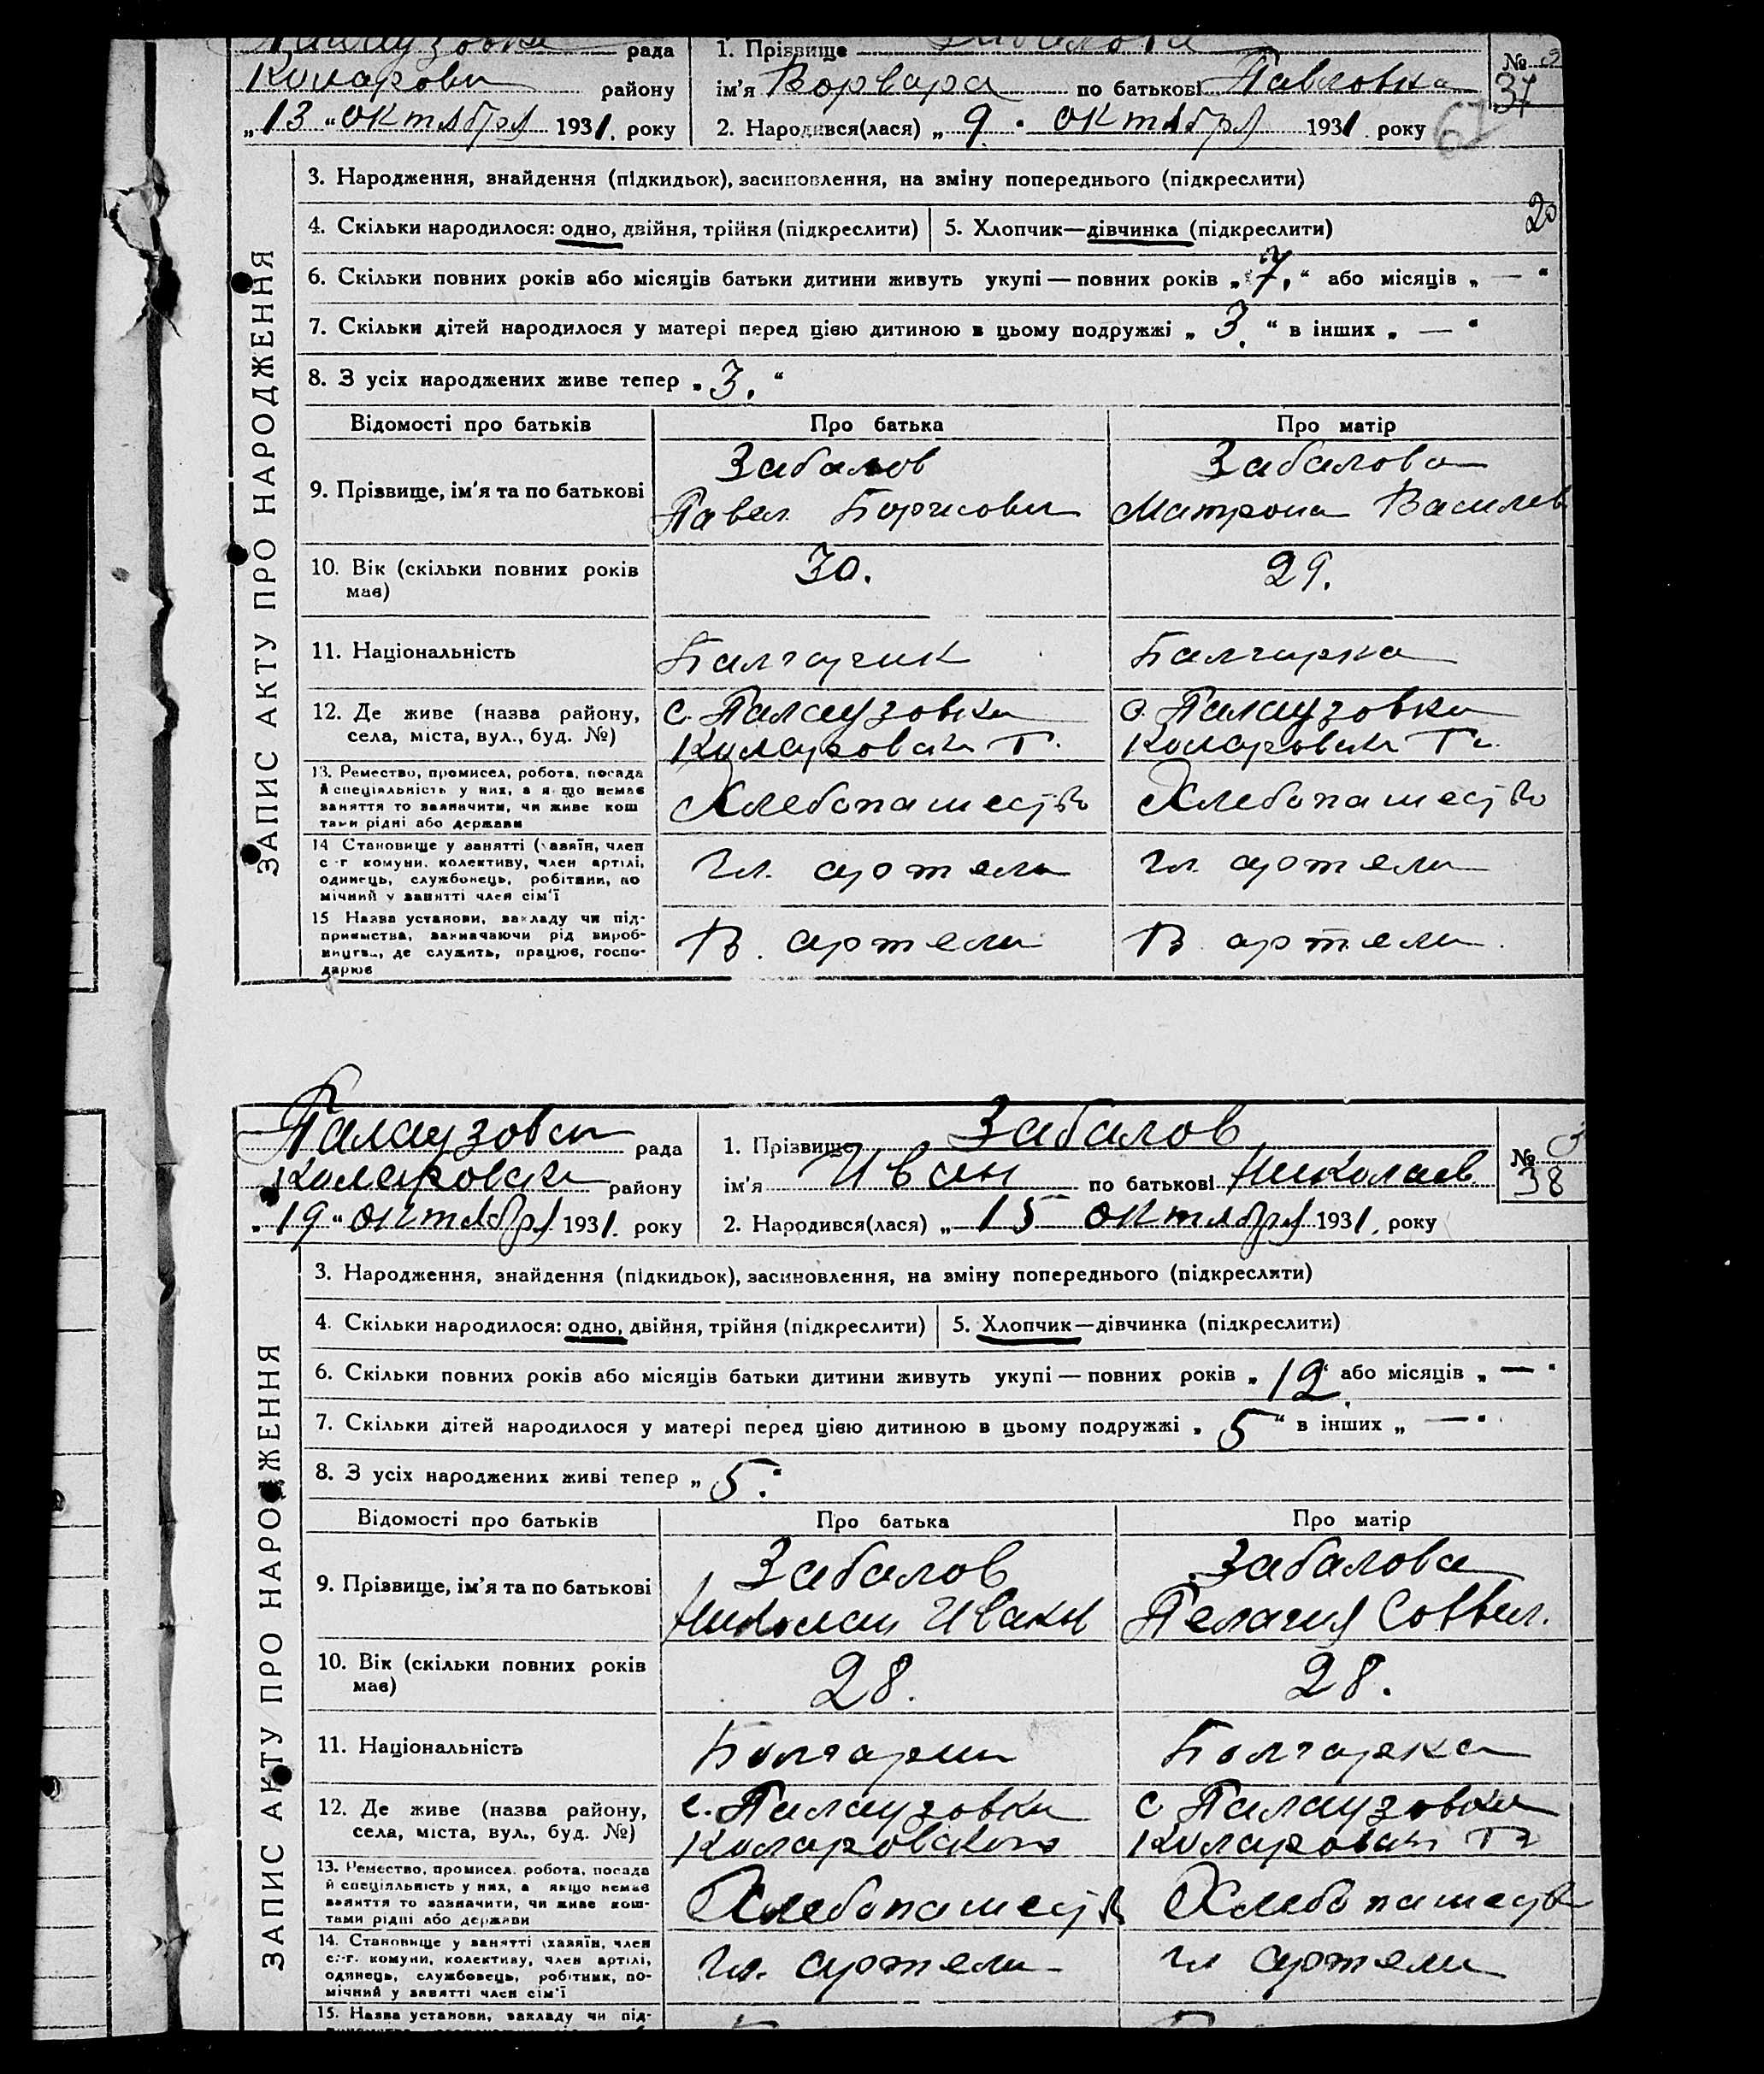 рада
1. Прізвище
№
Коларовск району
ім'я Ворвара по батькові Павловна
37
„13“ октября 1931. року
2. Народився(лася) „9.“ октября 1931 року
62
3. Народження, знайдення (підкидьок), засиновлення, на зміну попереднього (підкреслити)
20
4. Скільки народилося: одно, двійня, трійня (підкреслити)
5. Хлопчик—дівчинка (підкреслити)
6. Скільки повних років або місяців батьки дитини живуть укупі — повних років „7.“ або місяців „—“
7. Скільки дітей народилося у матері перед цією дитиною в цьому подружжі „3.“ в інших „—“
8. З усіх народжених живе тепер „3.“
ЗАПИС АКТУ ПРО НАРОДЖЕННЯ
Відомості про батьків
Про батька
Про матір
9. Прізвище, ім'я та по батькові
Забалов
Павел Борисович
Забалова
Матрона Василев
10. Вік (скільки повних років
має)
30.
29.
11. Національність
Балгарик
Балгарка
12. Де живе (назва району,
села, міста, вул., буд. №)
с. Палаузовка
Коларовск Г.
с. Палаузовка
Коларовск Г.
13. Ремество, промисел, робота, посада
й спеціяльність у них, а якщо немає
заняття то зазначити, чи живе кош
тами рідні або держави
Хлебопашество
Хлебопашество
14 Становище у занятті (хазяїн, член
с-г комуни, колективу, член артілі,
одинець, службовець, робітник, по
мічний у занятті член сім'ї
Чл. артели
Чл. артели
15 Назва установи, закладу чи під-
приємства, зазначаючи рід вироб-
ництва, де служить, працює, госпо-
дарює
В. артели
В артели.
Палаузовск рада
1. Прізвище Забалов
№
Коларовск району
ім'я Иван по батькові Николаев.
38
„19“ октября 1931. року
2. Народився(лася) „15 октября 1931. року
3. Народження, знайдення (підкидьок), засиновлення, на зміну попереднього (підкреслити)
4. Скільки народилося: одно, двійня, трійня (підкреслити)
5. Хлопчик—дівчинка (підкреслити)
6. Скільки повних років або місяців батьки дитини живуть укупі — повних років „12“ або місяців „—“
7. Скільки дітей народилося у матері перед цією дитиною в цьому подружжі „5“ в інших „—“
8. З усіх народжених живі тепер „5.“
ЗАПИС АКТУ ПРО НАРОДЖЕННЯ
Відомості про батьків
Про батька
Про матір
9. Прізвище, ім'я та по батькові
Забалов
Николай Иванов
Забалова
Пелагия Саввил.
10. Вік (скільки повних років
має)
28.
28.
11. Національність
Болгарин
Болгарка
12. Де живе (назва району,
села, міста, вул., буд. №)
с. Палаузовка
Коларовского
с Палаузовка
Коларовск
13. Ремество, промисел, робота, посада
й спеціяльність у них, а якщо немає
заняття то зазначити, чи живе кош-
тами рідні або держави
Хлебопашест
Хлебопашест
14. Становище у занятті (хазяїн, член
с.-г. комуни, колективу, член артілі,
одинець, службовець, робітник, по-
мічний у занятті член сім'ї
Чл. артели
Чл артели
15. Назва установи, закладу чи під-